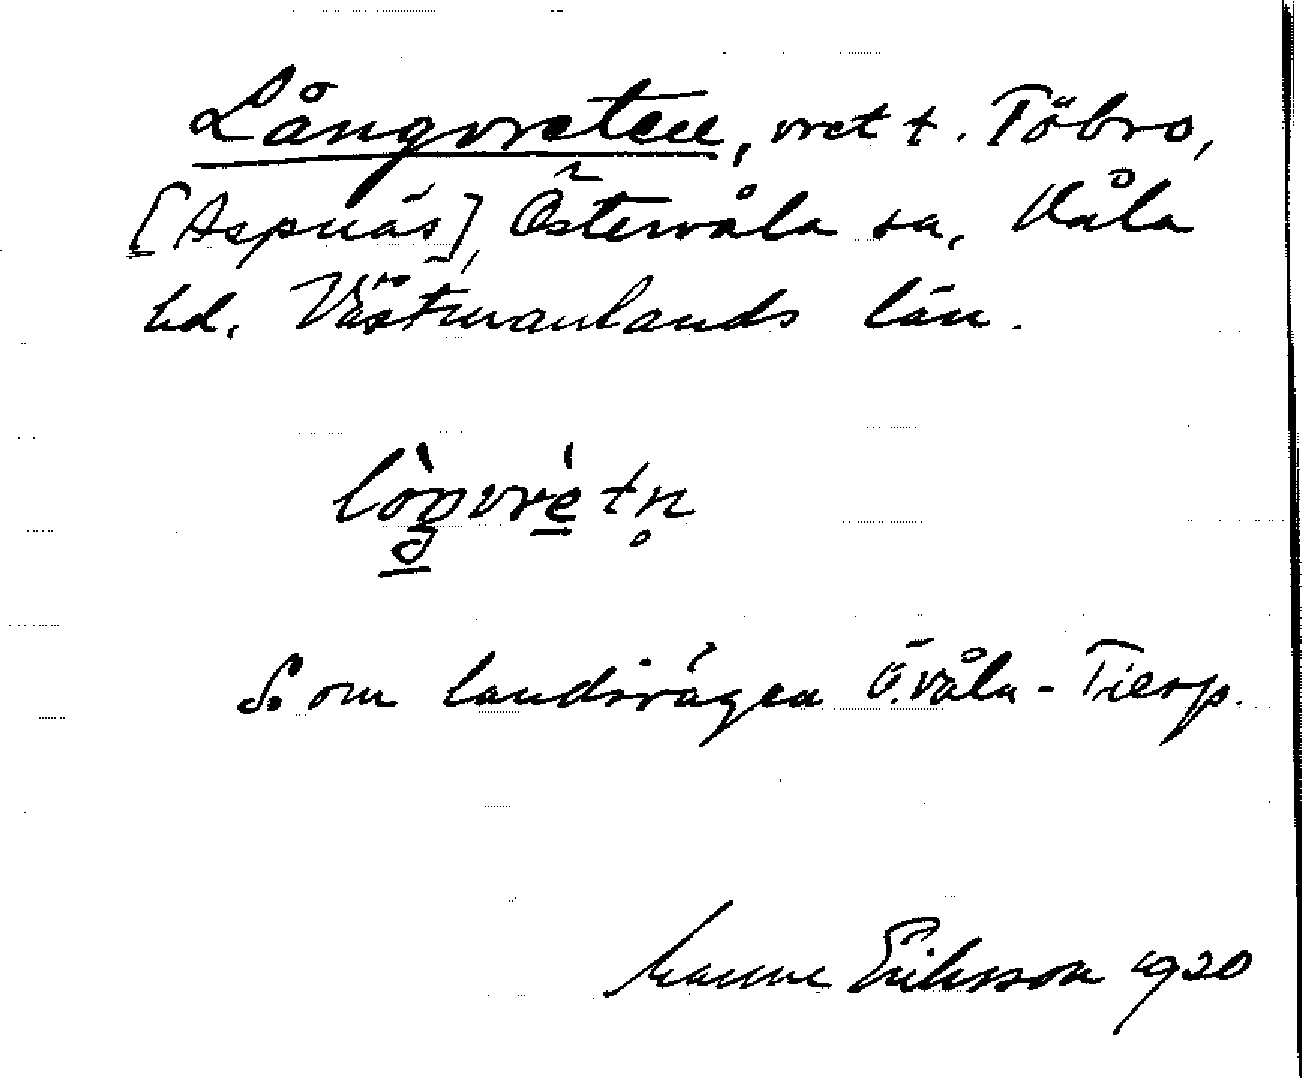 Långvreten, vret t. Töbro,
[Aspnäs], Östervåla sn, Våla
hd. Västmanlands län.
lòŋvrètn̥
S. om landsvägen Ö.våla - Tierp.
Manne Eriksson 1920